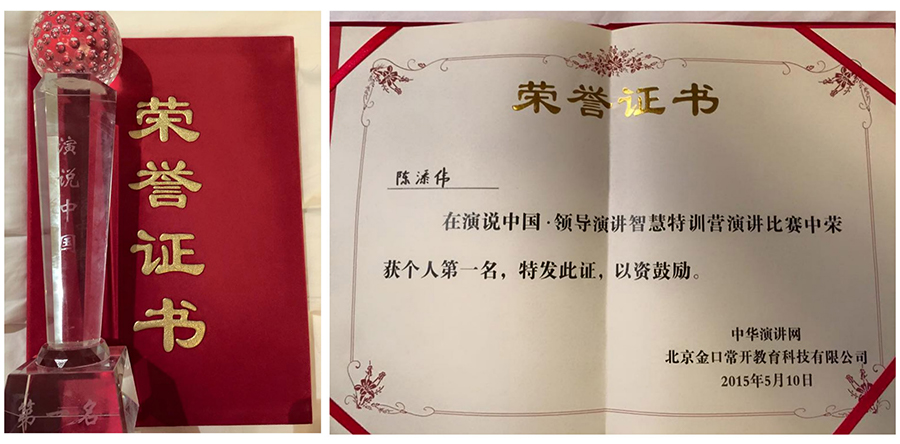 演说中国
第一名
荣誉证书
荣誉证书
陈添伟
在演说中国·领导演讲智慧特训营演讲比赛中荣
获个人第一名，特发此证，以资鼓励。
中华演讲网
北京金口常开教育科技有限公司
2015年5月10日